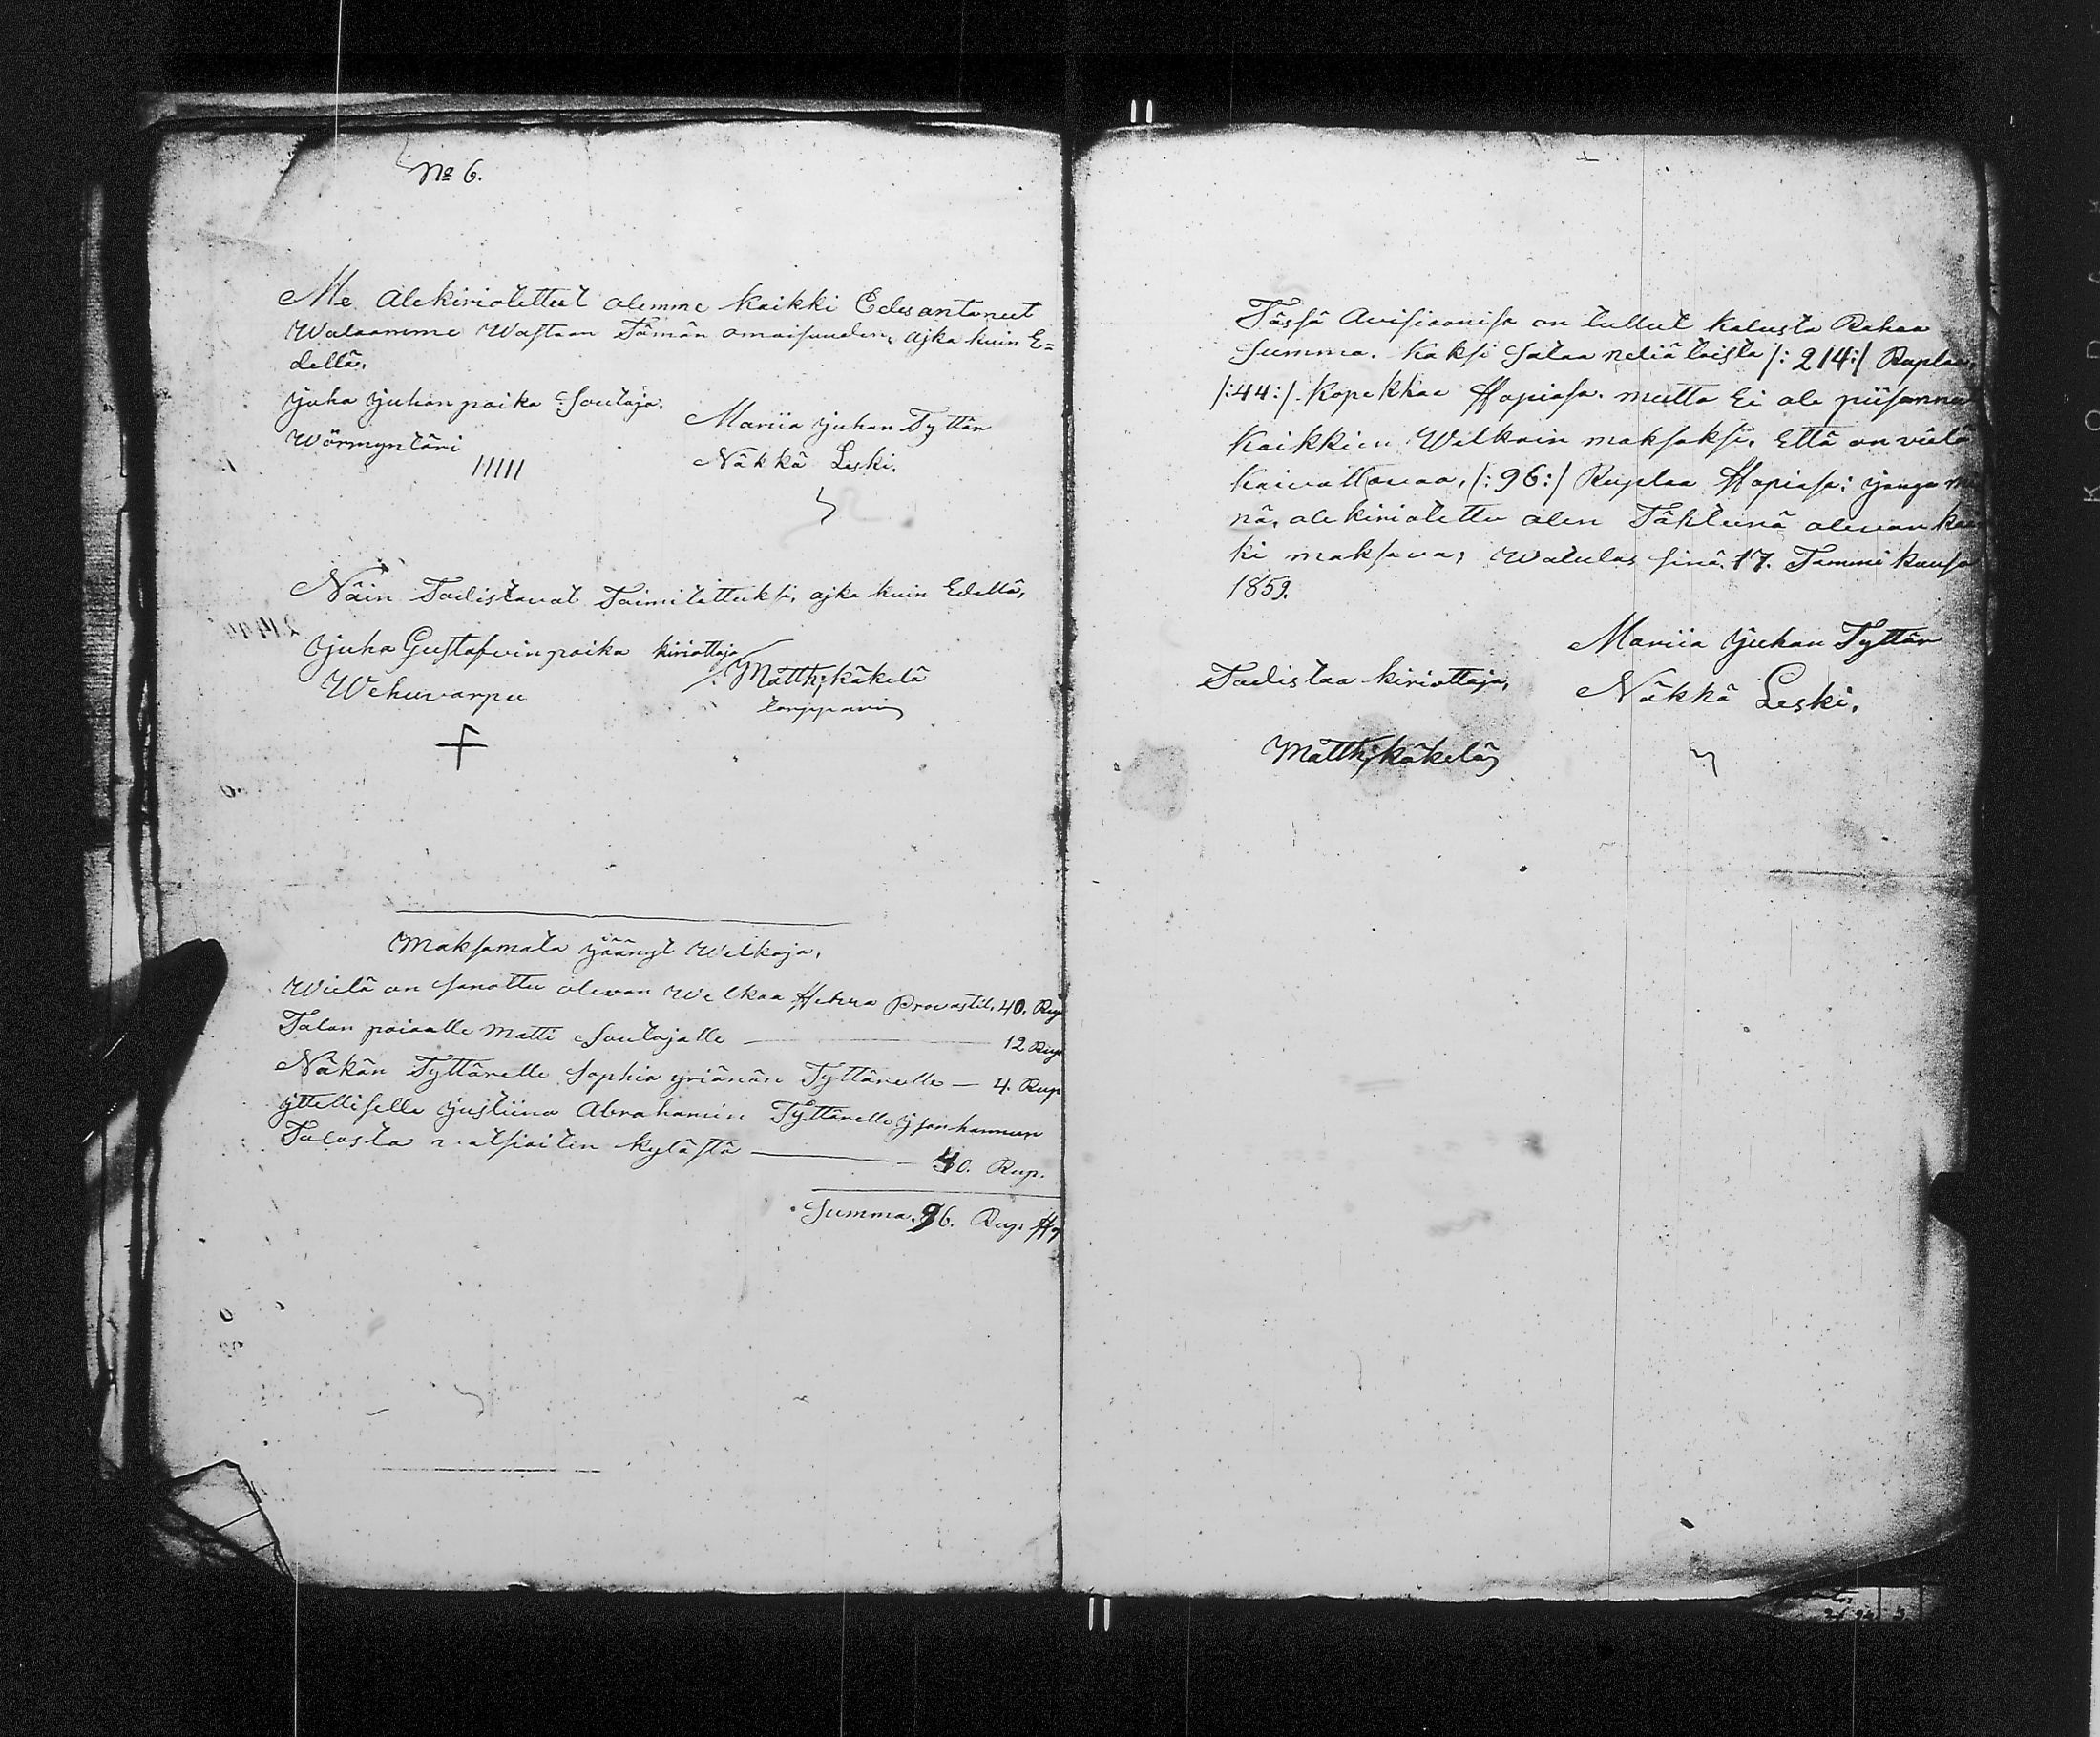 No 6.
Me Alekiriotettut olemme kaikki Edesantanut
Walaamme Wastaan Tämän omaisuuden, ajka kuin E=
dellä.
Juha Juhan poika Soutaja.
Wörmyntäri
Mariia Juhan Tyttär
Näkkä Leski.
Näin Todistavat Toimitettuksi, ajka kuin Edellä,
Juha Gustafvin poika
Wehuvarpu
kiriottaja
Matth; käkelä
torppari
Maksamata jäänyt Welkoja.
Wielä on sanottu olevan Welkaa Herra Provastil. 40. Rup
Talon poiaalle Matti Soutajalle — 12 Rup
Näkän Tyttärelle Sophia yriänän Tyttärelle — 4. Rup
yttelliselle Justiina Abrahamin Tyttärelle
Talosta kylästä — 40. Rup.
Summa. 96. Rup
Tässä Avisioonisa on tullut kalusta Rahaa
Summa. Kaksi Sataa neliätoista /: 214:/ Ruplaa,
/:44:/. Kopekkaa Hopiasa. mutta Ei ole piisannut
Kaikkien Welkain maksoksi. Että on vielä
kaivattavaa, /: 96:/ Ruplaa Hopiasa: jonga mi
nä, ale kiriotettu olen Tähteenä olevan kai
ki maksava, Watulas sinä. 17. Tammi kuusa
1859.
Mariia Juhan Tyttär
Näkkä Leski.
Todistaa kiriottaja,
Matth; käkelä
KODAK